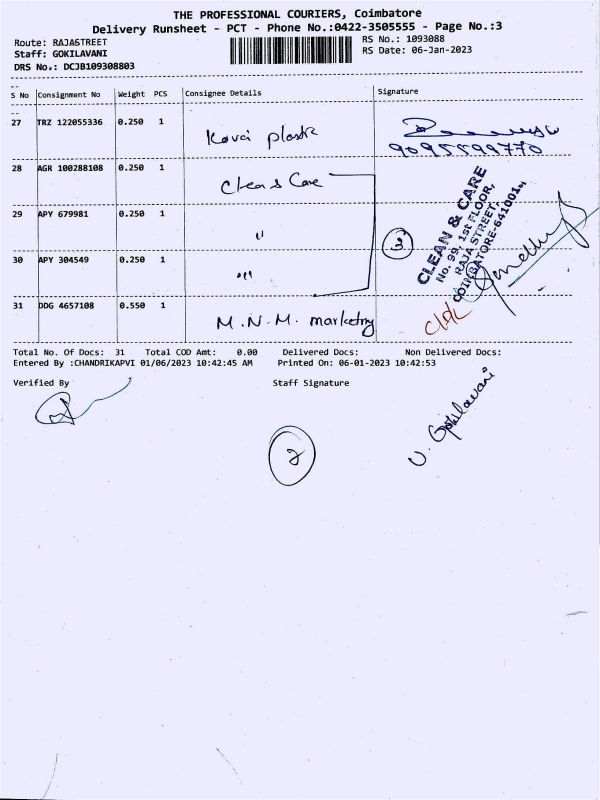 THE PROFESSIONAL COURIERS, Coimbatore
Delivery Runsheet - PCT - Phone No.:0422-3505555 - Page No.:3
Route: RAJASTREET
RS No.: 1093088
Staff: GOKILAVANI
RS Date: 06-Jan-2023
DRS No.: DCJB109308803
S No Consignment No Weight PCS Consignee Details Signature
27 TRZ 122055336 0.250 1 Kovai plastic
9095599770
28 AGR 100288108 0.250 1 Clean & Care
29 APY 679981 0.250 1 "
3
CLEAN & CARE
No. 99, 1st FLOOR,
RAJA STREET,
COIMBATORE-641001.
30 APY 304549 0.250 1 "
31 DDG 4657108 0.550 1 M.N.M. marketing
Total No. Of Docs: 31 Total COD Amt: 0.00 Delivered Docs: Non Delivered Docs:
Entered By :CHANDRIKAPVI 01/06/2023 10:42:45 AM Printed On: 06-01-2023 10:42:53
Verified By Staff Signature
U. Gokilavani
2